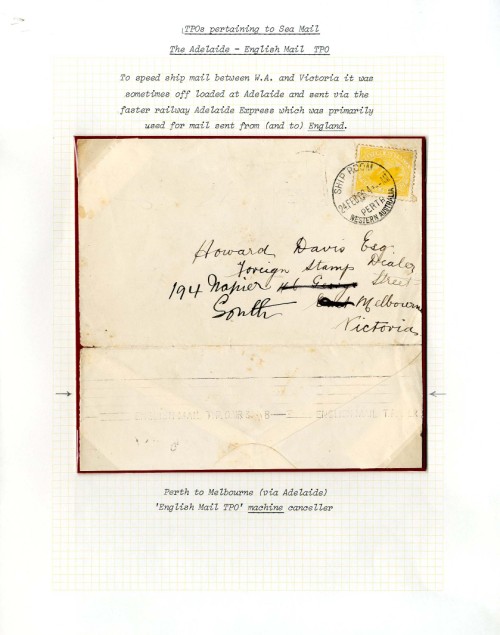 TPOs pertaining to Sea Mail
The Adelaide - English Mail TPO
To speed ship mail between W.A. and Victoria it was
sometimes off loaded at Adelaide and sent via the
faster railway Adelaide Express which was primarily
used for mail sent from (and to) England.
SHIP ROOM
24 FE
PERTH
WESTERN AUSTRALIA
Howard Davis Esq.
Foreign Stamp Dealer
194 Napier George Street
South East Melbourne
Victoria
ENGLISH MAIL T.P.O.
ENGLISH MAIL T.P.O.
Perth to Melbourne (via Adelaide)
'English Mail TPO' machine canceller